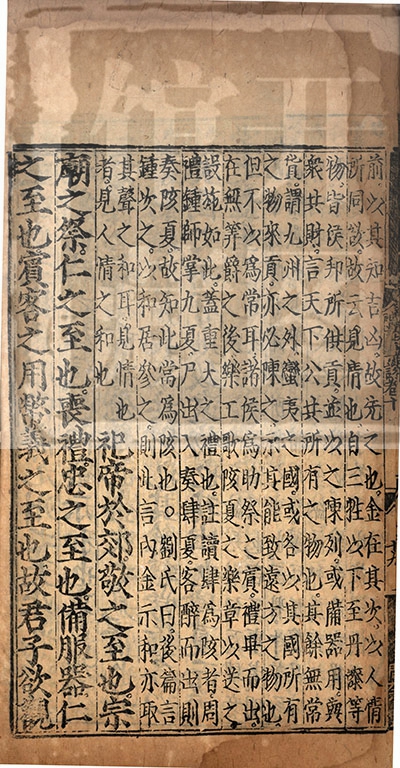 前以其知吉凶故先之也金在其次以人情
所同欲故云見情也自三牲以下至丹漆等
物皆侯邦所供貢並以之陳列或備器用與
衆共財言天下公共所有之物也其餘無常
貨謂九州之外蠻夷之國或各以其國所有
之物來貢亦必陳之示其能致遠方之物也
但不以爲常耳諸侯爲助祭之賓禮畢而出
在無筭爵之後樂工歌陔夏之樂章以送之
設施如此蓋重大之禮也註讀肆爲陔者周
禮鍾師掌九夏尸出入奏肆夏客醉而出則
奏陔夏故知此當爲陔也。劉氏曰後篇言
鍾次之以和居參之則此言內金示和亦取
其聲之和耳見情也
者見人情之和也
祀帝於郊敬之至也宗
廟之祭仁之至也喪禮忠之至也備服器仁
之至也賓客之用幣義之至也故君子欲觀